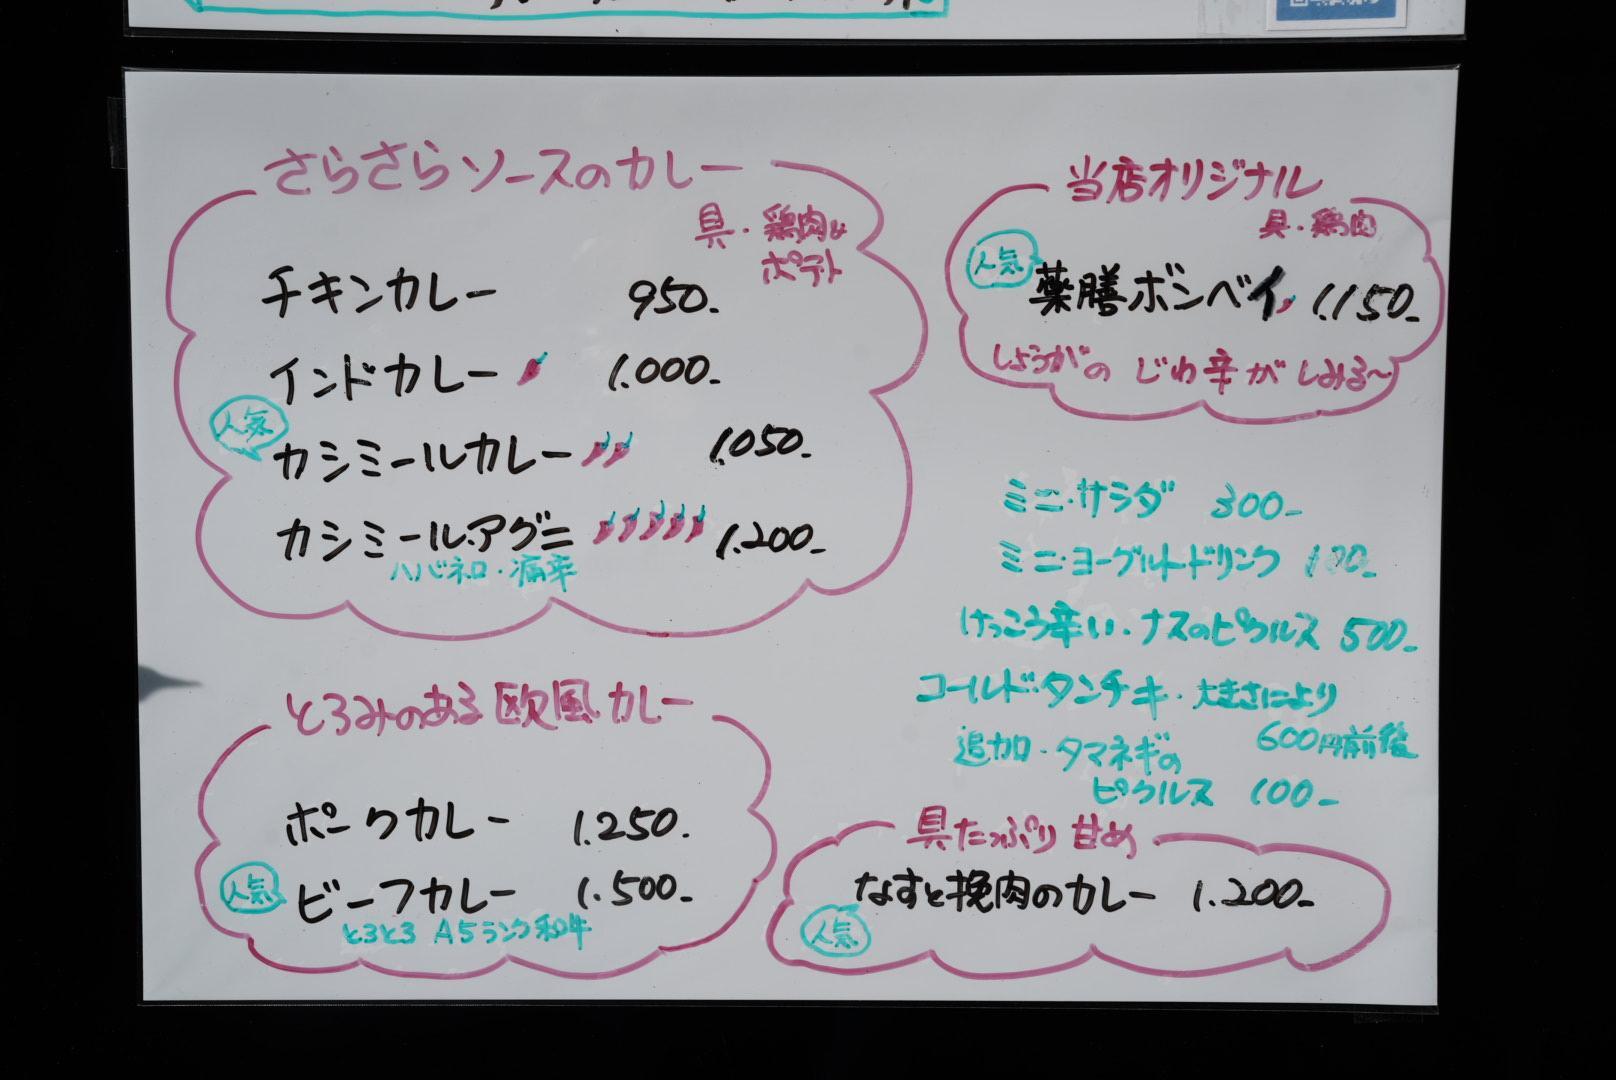 さらさらソースのカレー
具・鶏肉&
ポテト
チキンカレー 950.-
インドカレー 1.000.-
人気
カシミールカレー 1.050.-
カシミール.アグニ 1.200.-
ハバネロ・痛辛
とろみのある欧風カレー
ポークカレー 1.250.
人気
ビーフカレー 1.500.-
とろとろ A5ランク和牛
当店オリジナル
具・鶏肉
人気
薬膳ボンベイ 1.150.-
しょうがの じわ辛がしみる〜
ミニ・サラダ 300-
ミニ・ヨーグルトドリンク
けっこう辛い・ナスのピクルス 500-
コールド・タンチキ・大きさにより
600円前後
追加・タマネギの
ピクルス 100-
具たっぷり 甘め
なすと挽肉のカレー 1.200-
人気